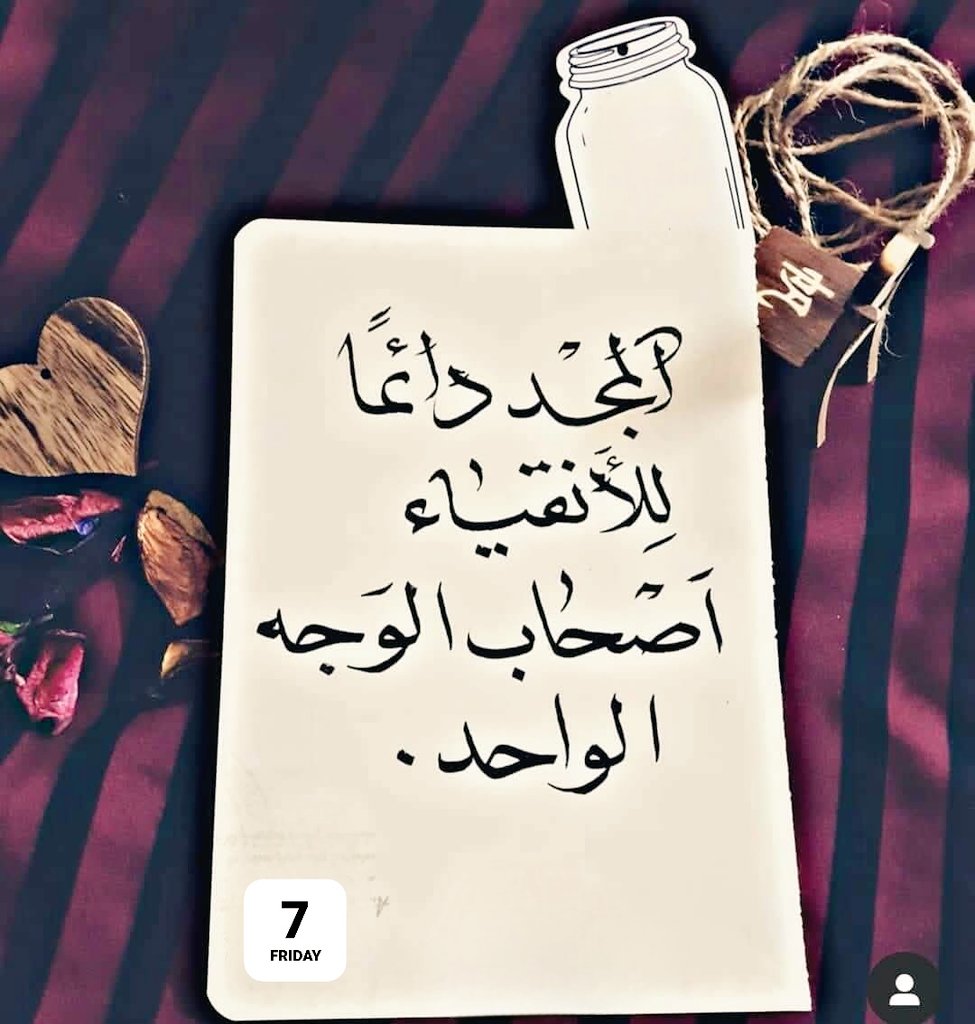 المجْد دائمًا
لِلأَنقياء
اَصْحاب الوَجه
الواحد.
7
FRIDAY